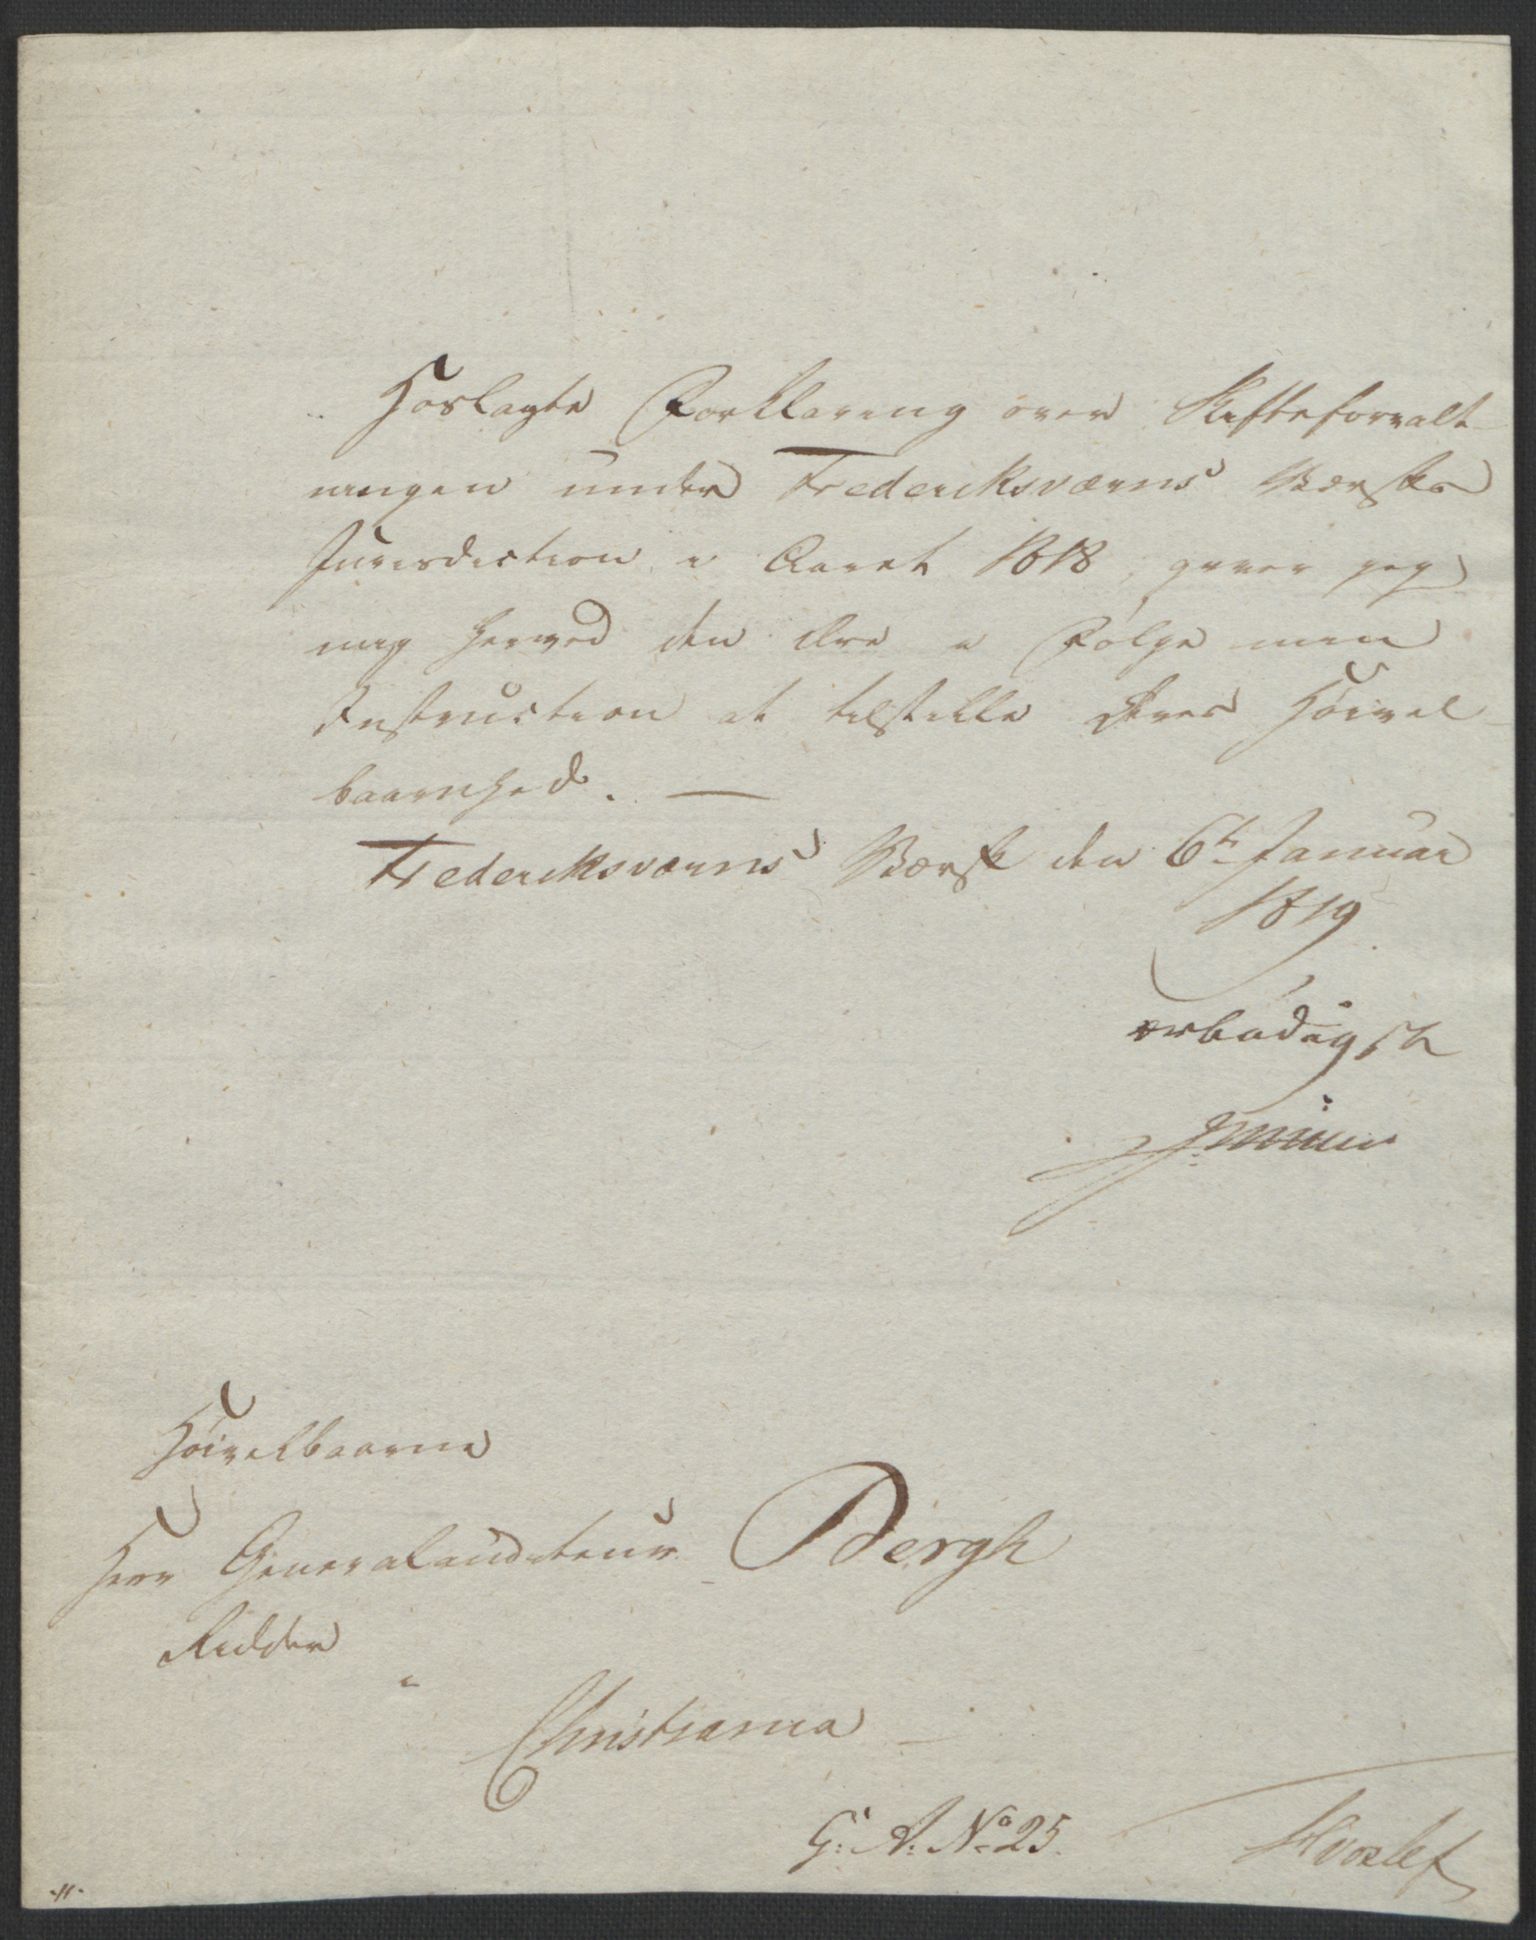 Hoslagte Forklaring over Skifteforvalt-
ningen under Frederiksværns Værfts
Jurisdiction i Aaret 1818, giver jeg
mig herved den Ære i Følge min
Instruction at tilstille Deres Høivel-
baarnhed. —
Frederiksværns Værft den 6te Januar
1819
ærbødigst
Høivelbaarne
Herr Generalauditeur Bergh
Ridder
i
Christiania
G: A: No 25.
Hvoslef